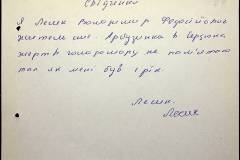 Свідчення
Я Лесик Володимир Федосійович
житель смт. Арбузинка в
жертв голодомору не пам'ятаю
так як мені був 1 рік.
Лесик.
Лесик